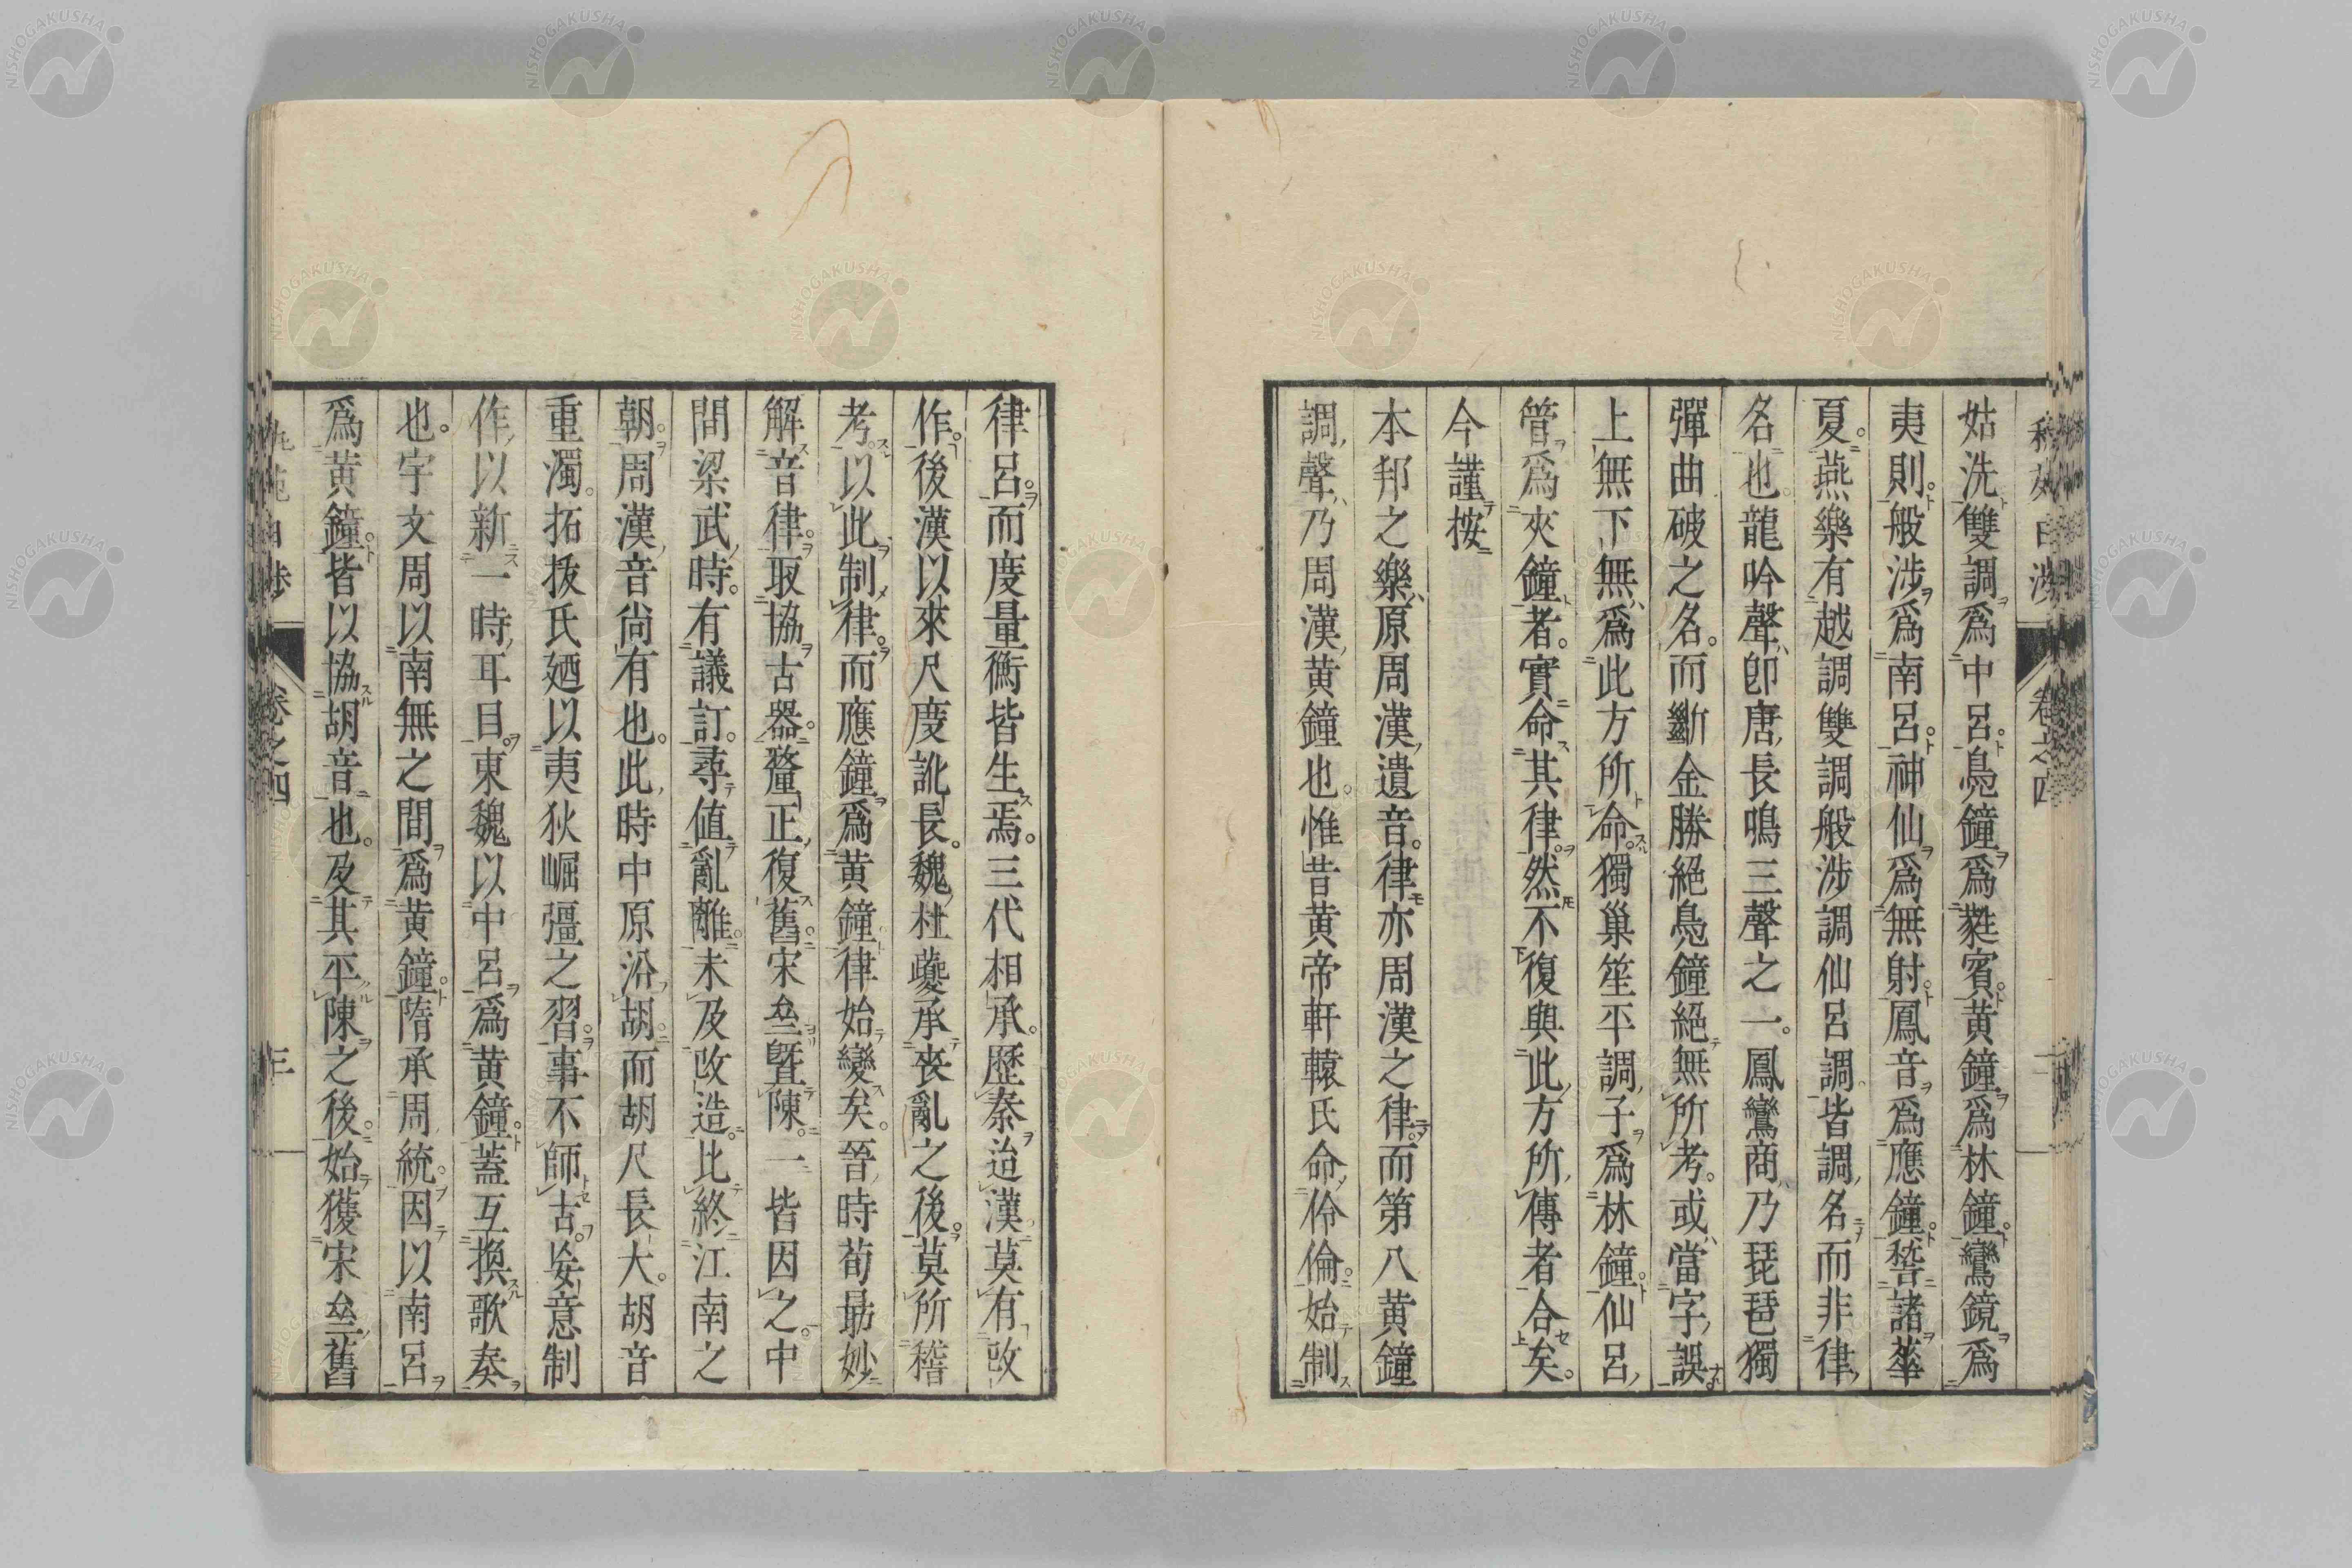 姑洗雙調爲中呂鳧鐘爲蕤賓黄鐘爲林鐘鸞鏡爲
夷則般涉爲南呂神仙爲無射鳳音爲應鐘嵇諸華
夏燕樂有越調雙調般涉調仙呂調皆調名而非律
名也龍吟聲卽唐長鳴三聲之一鳳鸞商乃琵琶獨
彈曲破之名而斷金勝絕鳧鐘絕無所考或當字誤
上無下無爲此方所命獨巢笙平調子爲林鐘仙呂
管爲夾鐘者實命其律然不復與此方所傳者合矣
今謹按
本邦之樂原周漢遺音律亦周漢之律而第八黄鐘
調聲乃周漢黄鐘也惟昔黄帝軒轅氏命伶倫始制
律呂而度量衡皆生焉三代相承歷秦迨漢莫有改
作後漢以來尺度訛長魏杜夔承喪亂之後莫所稽
考以此制律而應鐘爲黄鐘律始變矣晉時荀勗妙
解音律取協古器釐正復舊宋亝曁陳一皆因之中
間梁武時有議訂尋値亂離未及改造比終江南之
朝周漢音尙有也此時中原沿胡而胡尺長大胡音
重濁拓拔氏廼以夷狄崛彊之習事不師古妄意制
作以新一時耳目東魏以中呂爲黄鐘蓋互換歌奏
也宇文周以南無之間爲黄鐘隋承周統因以南呂
爲黄鐘皆以協胡音也及其平陳之後始獲宋亝舊
卷之四
三